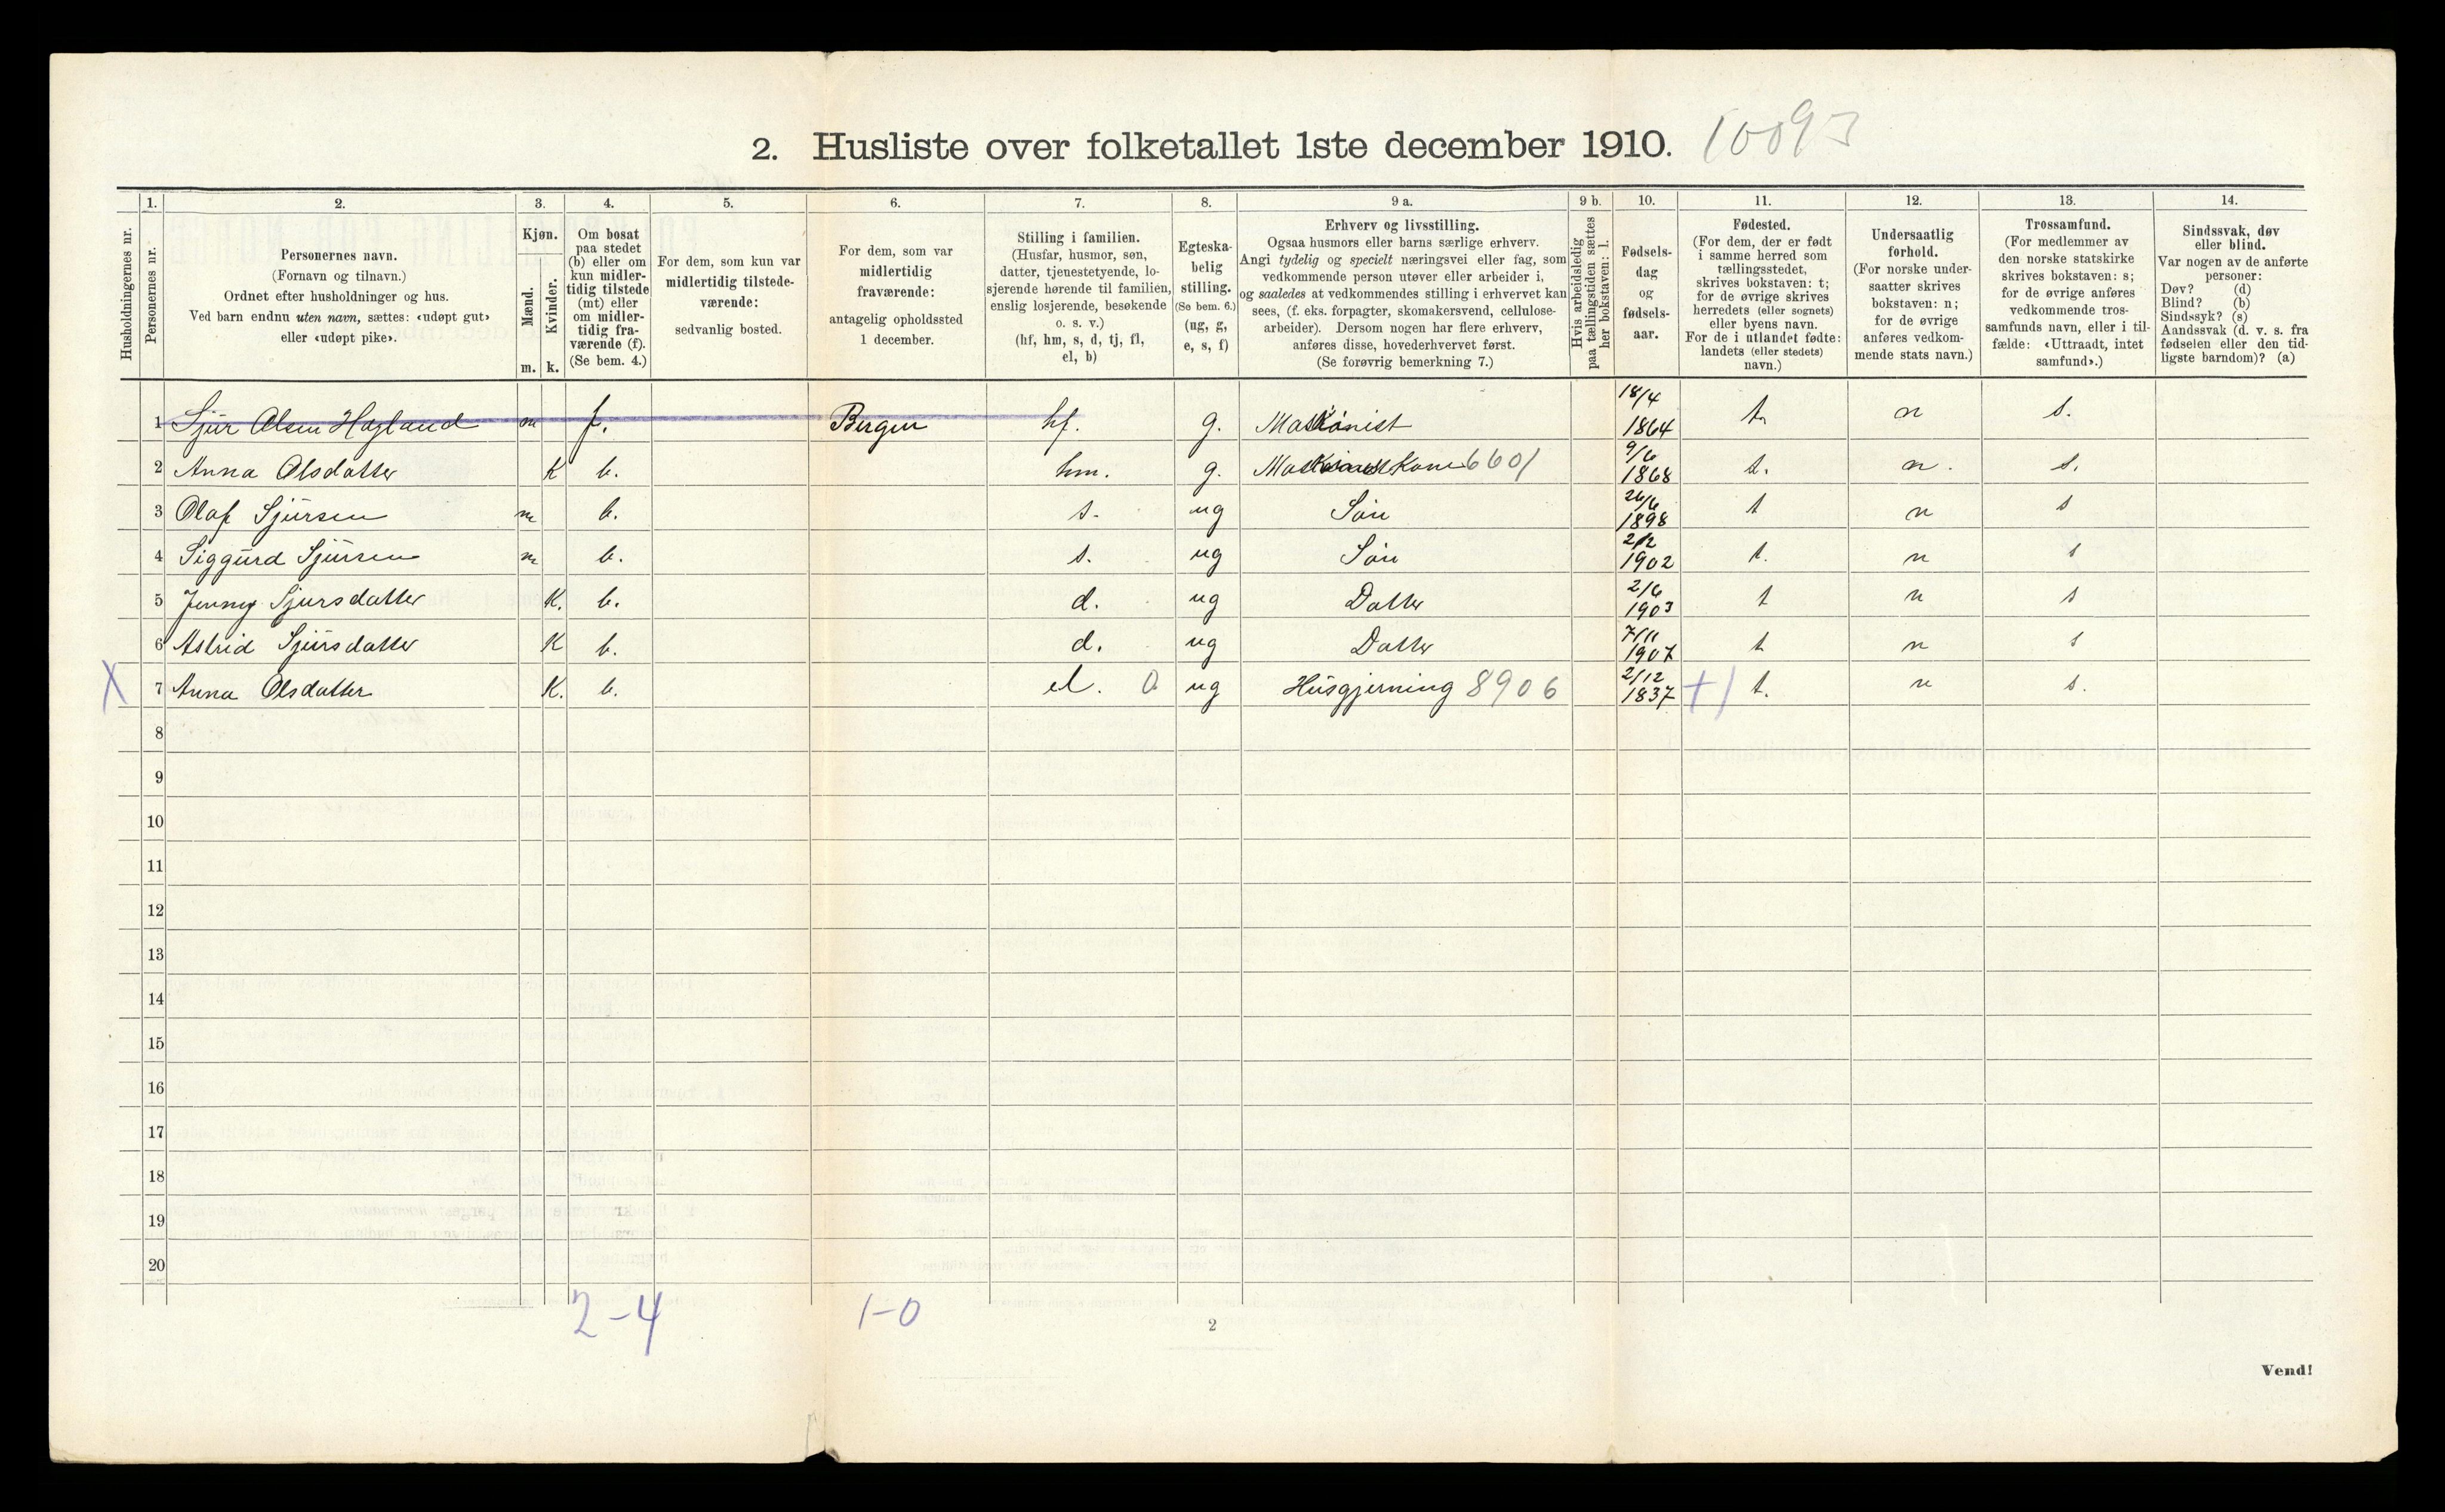 2. Husliste over folketallet 1ste december 1910. 10093
Husholdningernes nr.
1.
Personernes nr.
2.
Personernes navn.
(Fornavn og tilnavn.)
Ordnet efter husholdninger og hus.
Ved barn endnu uten navn, sættes: «udøpt gut»
eller «udøpt pike».
3.
Kjøn.
Mænd.
Kvinder.
m. k.
4.
Om bosat
paa stedet
(b) eller om
kun midler-
tidig tilstede
(mt) eller
om midler-
tidig fra-
værende (f).
(Se bem. 4.)
5.
For dem, som kun var
midlertidig tilstede-
værende:
sedvanlig bosted.
6.
For dem, som var
midlertidig
fraværende:
antagelig opholdssted
1 december.
7.
Stilling i familien.
(Husfar, husmor, søn,
datter, tjenestetyende, lo-
sjerende hørende til familien,
enslig losjerende, besøkende
o. s. v.)
(hf, hm, s, d, tj, fl,
el, b)
8.
Egteska-
belig
stilling.
(Se bem. 6.)
(ug, g,
e, s, f)
9 a.
Erhverv og livsstilling.
Ogsaa husmors eller barns særlige erhverv.
Angi tydelig og specielt næringsvei eller fag, som
vedkommende person utøver eller arbeider i,
og saaledes at vedkommendes stilling i erhvervet kan
sees, (f. eks. forpagter, skomakersvend, cellulose-
arbeider). Dersom nogen har flere erhverv,
anføres disse, hovederhvervet først.
(Se forøvrig bemerkning 7.)
9 b.
Hvis arbeidsledig
paa tællingstiden sættes
her bokstaven: l.
10.
Fødsels-
dag
og
fødsels-
aar.
11.
Fødested.
(For dem, der er født
i samme herred som
tællingsstedet,
skrives bokstaven: t;
for de øvrige skrives
herredets (eller sognets)
eller byens navn.
For de i utlandet fødte:
landets (eller stedets)
navn.)
12.
Undersaatlig
forhold.
(For norske under-
saatter skrives
bokstaven: n;
for de øvrige
anføres vedkom-
mende stats navn.)
13.
Trossamfund.
(For medlemmer av
den norske statskirke
skrives bokstaven: s;
for de øvrige anføres
vedkommende tros-
samfunds navn, eller i til-
fælde: «Uttraadt, intet
samfund».)
14.
Sindssvak, døv
eller blind.
Var nogen av de anførte
personer:
Døv? (d)
Blind? (b)
Sindssyk? (s)
Aandssvak (d. v. s. fra
fødselen eller den tid-
ligste barndom)? (a)
1 Sjur Olsen Hagland m f. Bergen hf. g. Maskinist 18/4 1864 t. n s.
2 Anna Olsdatter K b. hm. g. Kone 6601 9/6 1868 t. n. s.
3 Olaf Sjursen m b. s. ug Søn 26/6 1898 t n s
4 Siggurd Sjursen m b. s. ug Søn 2/2 1902 t. n s
5 Jenny Sjursdatter K. b. d. ug Datter 2/6 1903 t n s
6 Astrid Sjursdatter K b. d. ug Datter 7/11 1907 t n s
X 7 Anna Olsdatter K. b. el. 0 ug Husgjerning 8906 2/12 1837 +1 t. n s.
8
9
10
11
12
13
14
15
16
17
18
19
20
2-4 1-0
2
Vend!